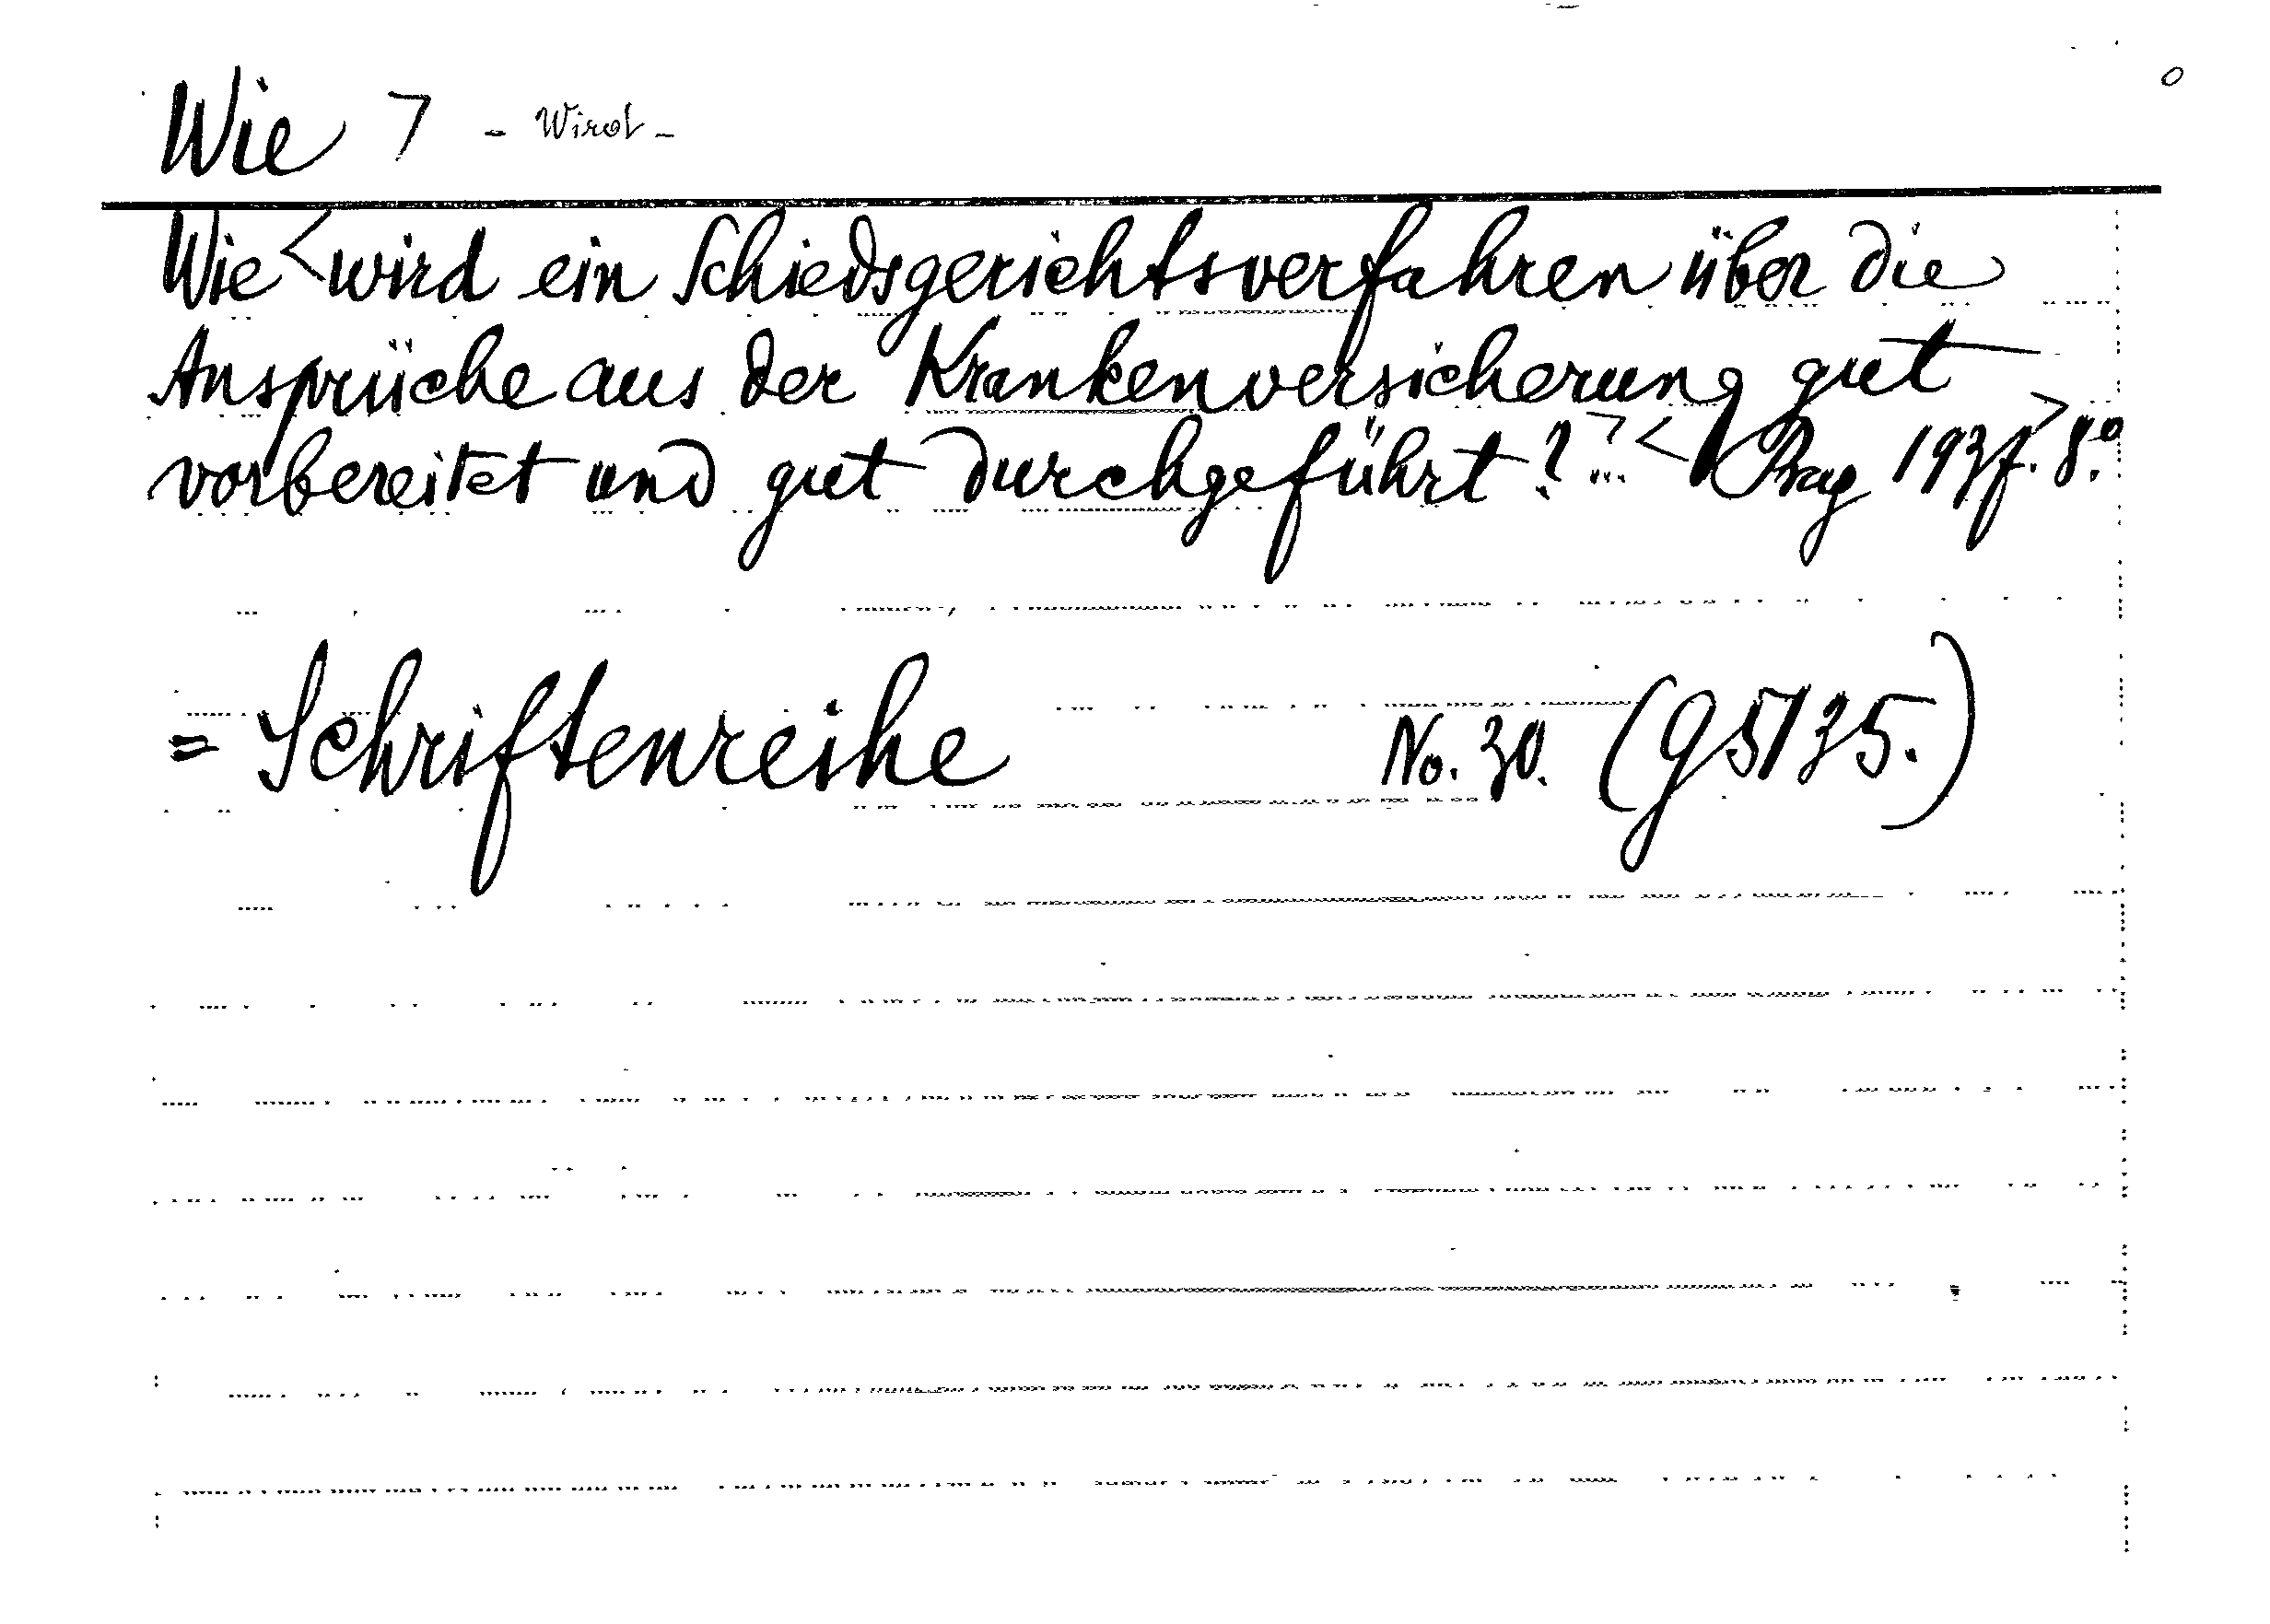 Wie > - Wird -
Wie < wird ein Schiedsgerichtsverfahren über die
Ansprüche aus der Krankenversicherung gut
vorbereitet und gut durchgeführt? > ... < Prag 1937. > 8.º
= Schriftenreihe No. 30. (G 5135.)